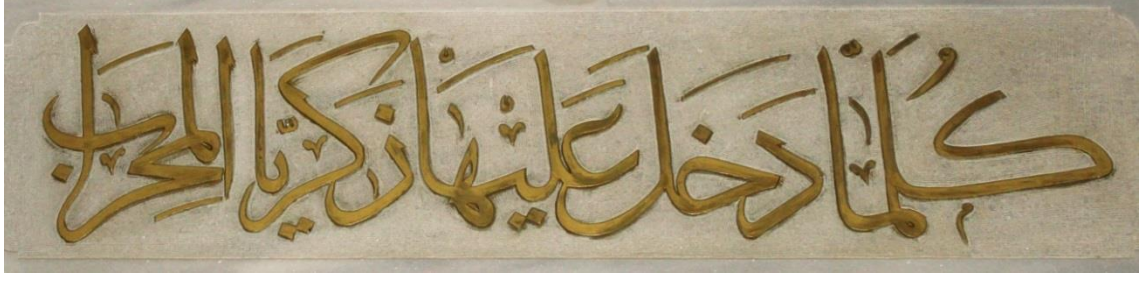 كُلَّمَا دَخَلَ عَلَيْهَا زَكَرِيَّا الْمِحْرَابَ